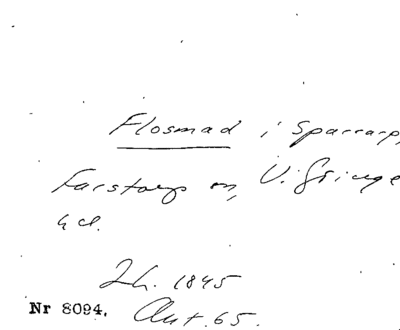 Flosmad i Sparrarp,
Farstorp sn, V. Göinge
hd.
Lh. 1845
Nr 8094. Akt. 65.